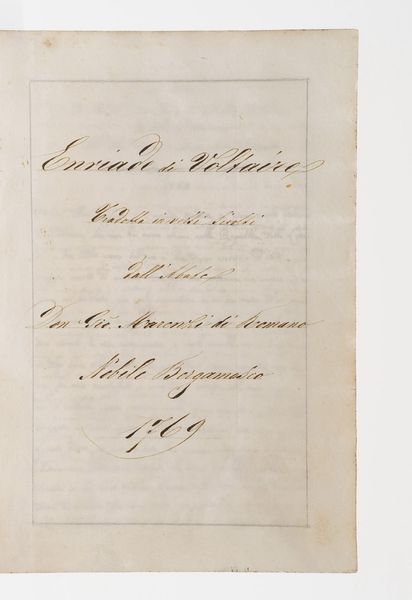 Enriade di Voltaire
Tradotta in versi sciolti
dall'Abate
Don Gio. Marenzi di Romano
Nobile Bergamasco
1769